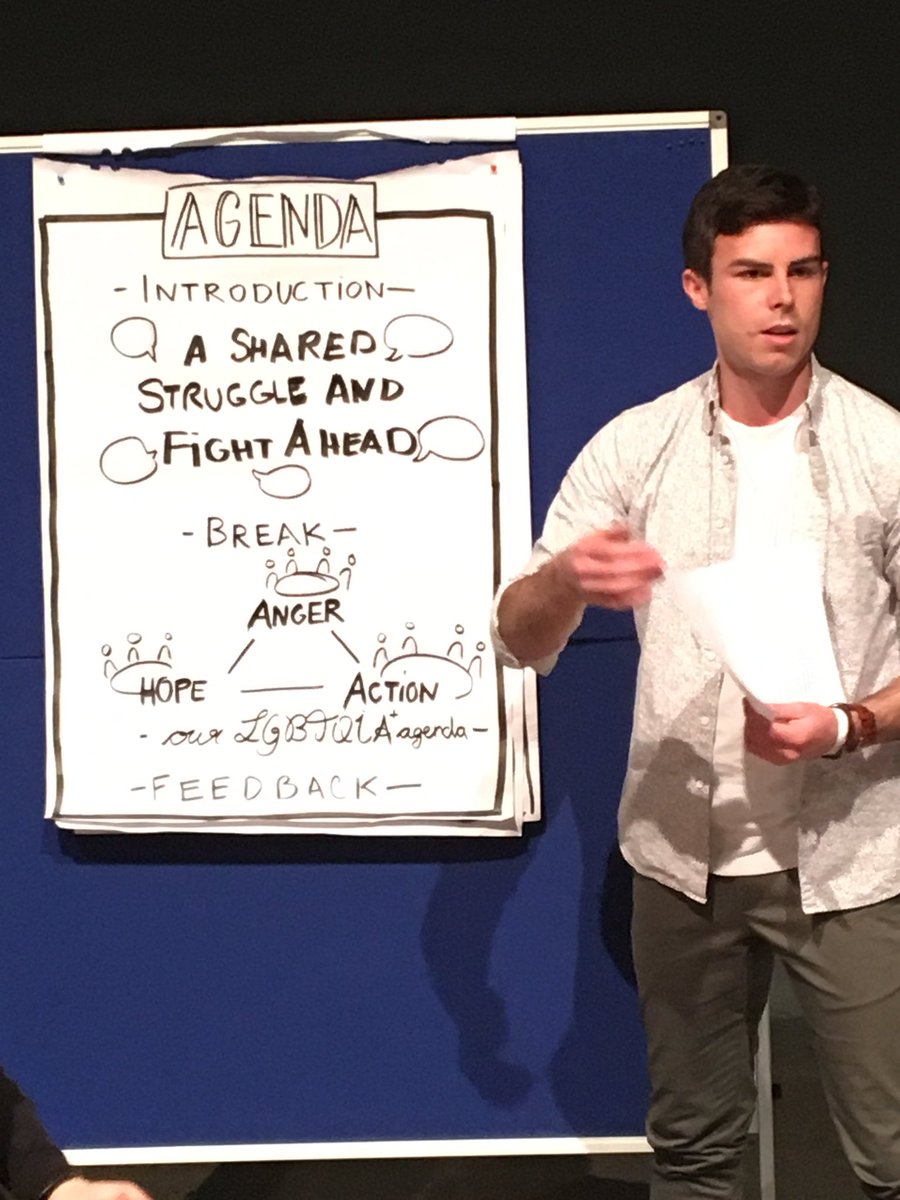 AGENDA
- INTRODUCTION -
A SHARED
STRUGGLE AND
FIGHT AHEAD
- BREAK -
ANGER
HOPE
ACTION
- our LGBTQIA+ agenda -
- FEEDBACK -